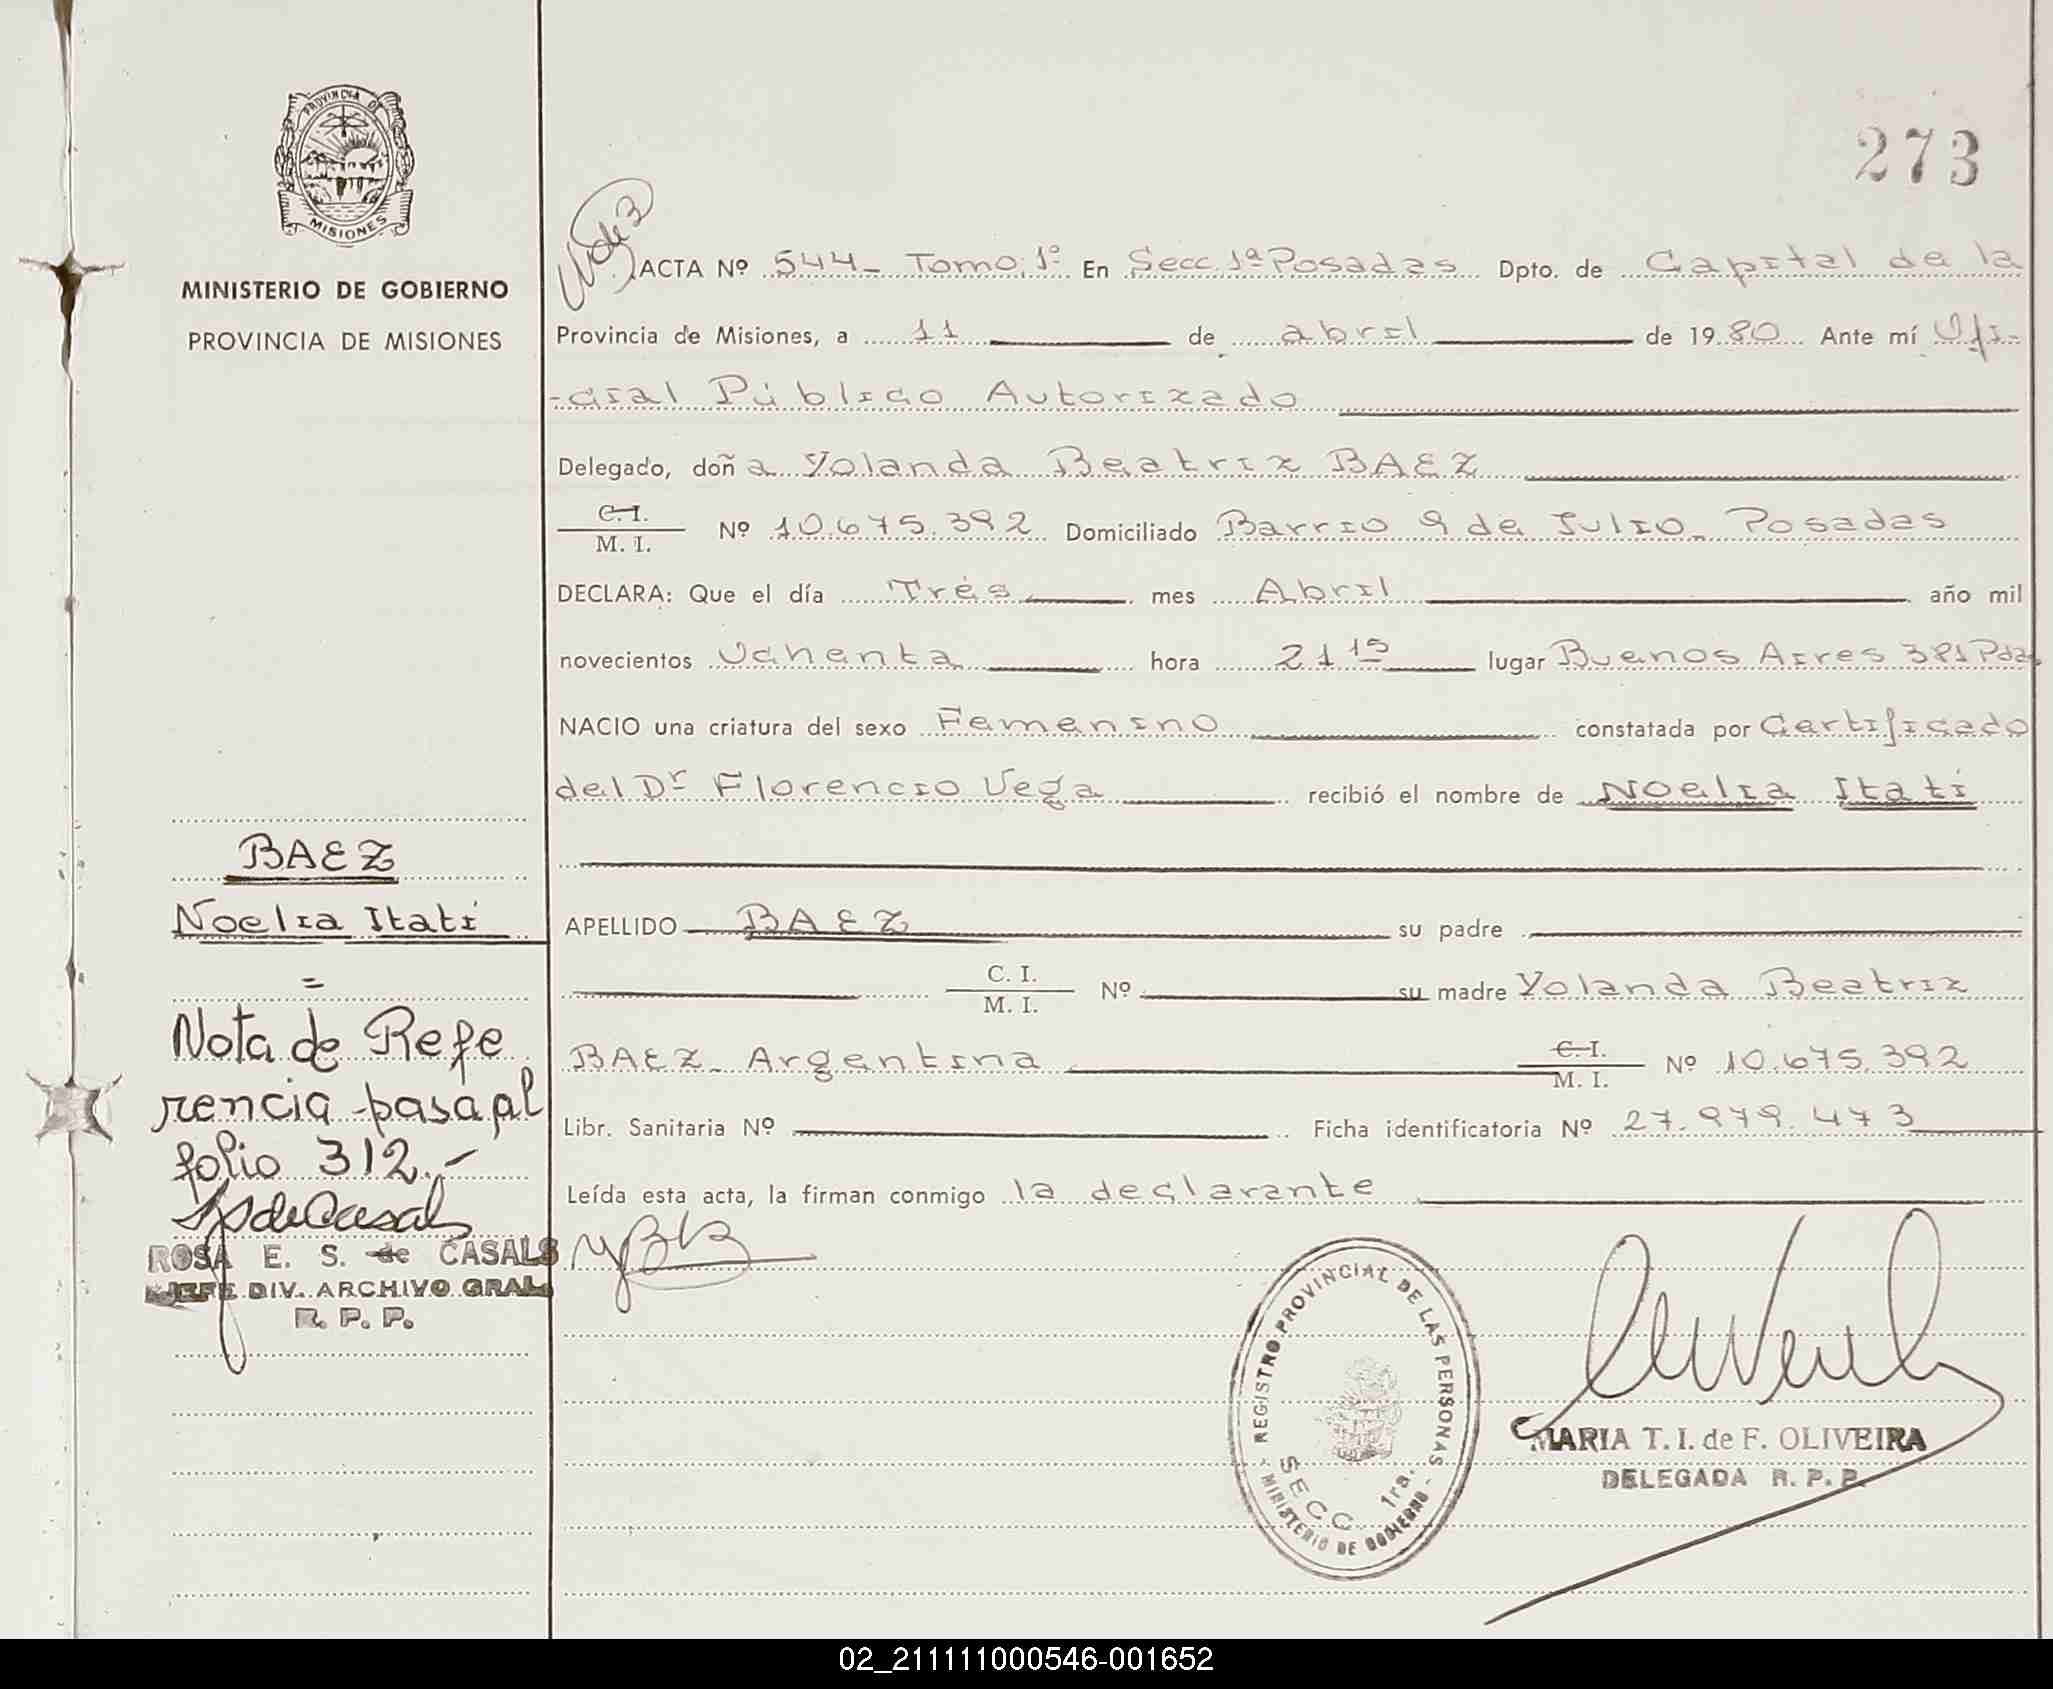 PROVINCIA DE
MISIONES
MINISTERIO DE GOBIERNO
PROVINCIA DE MISIONES
BAEZ
Noelia Itatí
=
Nota de Refe
rencia pasa al
folio 312.-
ROSA E. S. de CASALS
JEFE DIV. ARCHIVO GRAL
R. P. P.
273
ACTA Nº 544- Tomo 1º En Secc. 1ª Posadas Dpto. de Capital de la
Provincia de Misiones, a 11 de abril de 1980 Ante mí Ofi-
-cial Público Autorizado
Delegado, doña Yolanda Beatriz BAEZ
C. I.
M. I. Nº 10.675.392 Domiciliado Barrio 9 de Julio - Posadas
DECLARA: Que el día Trés mes Abril año mil
novecientos Ochenta hora 21 15 lugar Buenos Aires 381 Pdas
NACIO una criatura del sexo Femenino constatada por Certificado
del Dr Florencio Vega recibió el nombre de Noelia Itatí
APELLIDO BAEZ su padre
C. I.
M. I. Nº su madre Yolanda Beatriz
BAEZ - Argentina C. I.
M. I. Nº 10.675.392
Libr. Sanitaria Nº Ficha identificatoria Nº 27.979.473
Leída esta acta, la firman conmigo la declarante
YBB
REGISTRO PROVINCIAL DE LAS PERSONAS
SECC. 1ra.
MINISTERIO DE GOBIERNO
MARIA T. I. de F. OLIVEIRA
DELEGADA R. P. P.
02_211111000546-001652